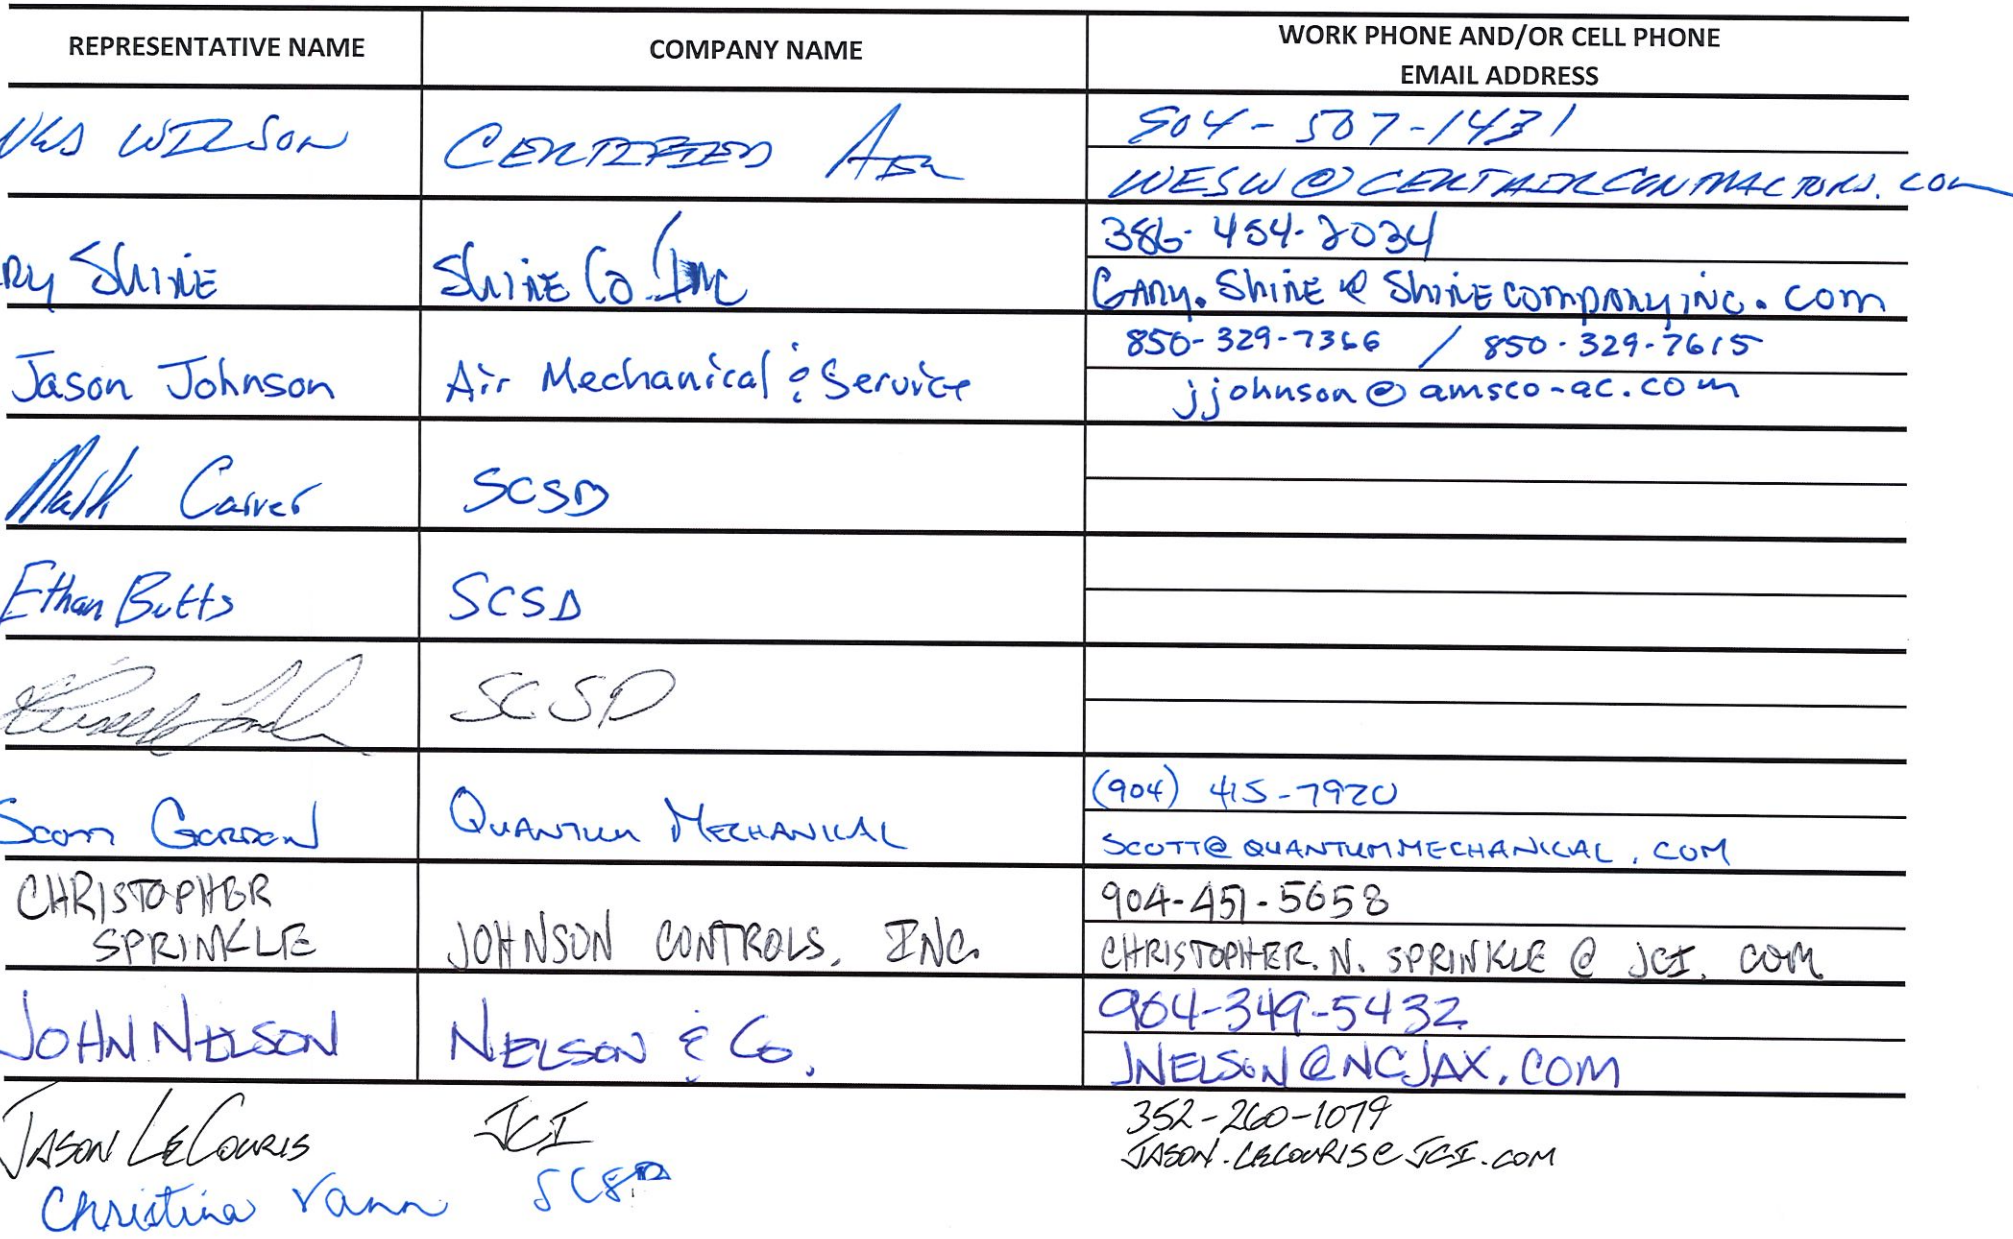 REPRESENTATIVE NAME
COMPANY NAME
WORK PHONE AND/OR CELL PHONE
EMAIL ADDRESS
WILSON
CERTIFIED AIR
904-507-1431
WESW@CERTAIRCONTRACTORS.COM
RY SHINE
SHINE CO. INC
386-454-2034
GARY.SHINE@SHINECOMPANYINC.COM
Jason Johnson
Air Mechanical & Service
850-329-7366 / 850-329-7615
jjohnson@amsco-ac.com
Mark Carver
SCSD
Ethan Butts
SCSD
SCSD
SCOTT GORDON
QUANTUM MECHANICAL
(904) 415-7920
SCOTT@QUANTUMMECHANICAL.COM
CHRISTOPHER
SPRINKLE
JOHNSON CONTROLS, INC.
904-451-5658
CHRISTOPHER.N.SPRINKLE@JCI.COM
JOHN NELSON
NELSON & CO.
904-349-5432
JNELSON@NCJAX.COM
JASON LECOURIS
JCI
352-260-1079
JASON.LECOURIS@JCI.COM
Christina Vann
SCSD